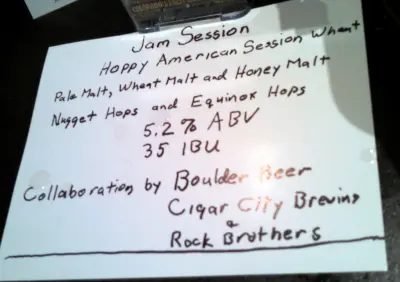 Jam Session
Hoppy American Session Wheat
Pale Malt, Wheat Malt and Honey Malt
Nugget Hops and Equinox Hops
5.2% ABV
35 IBU
Collaboration by Boulder Beer
Cigar City Brewing
&
Rock Brothers